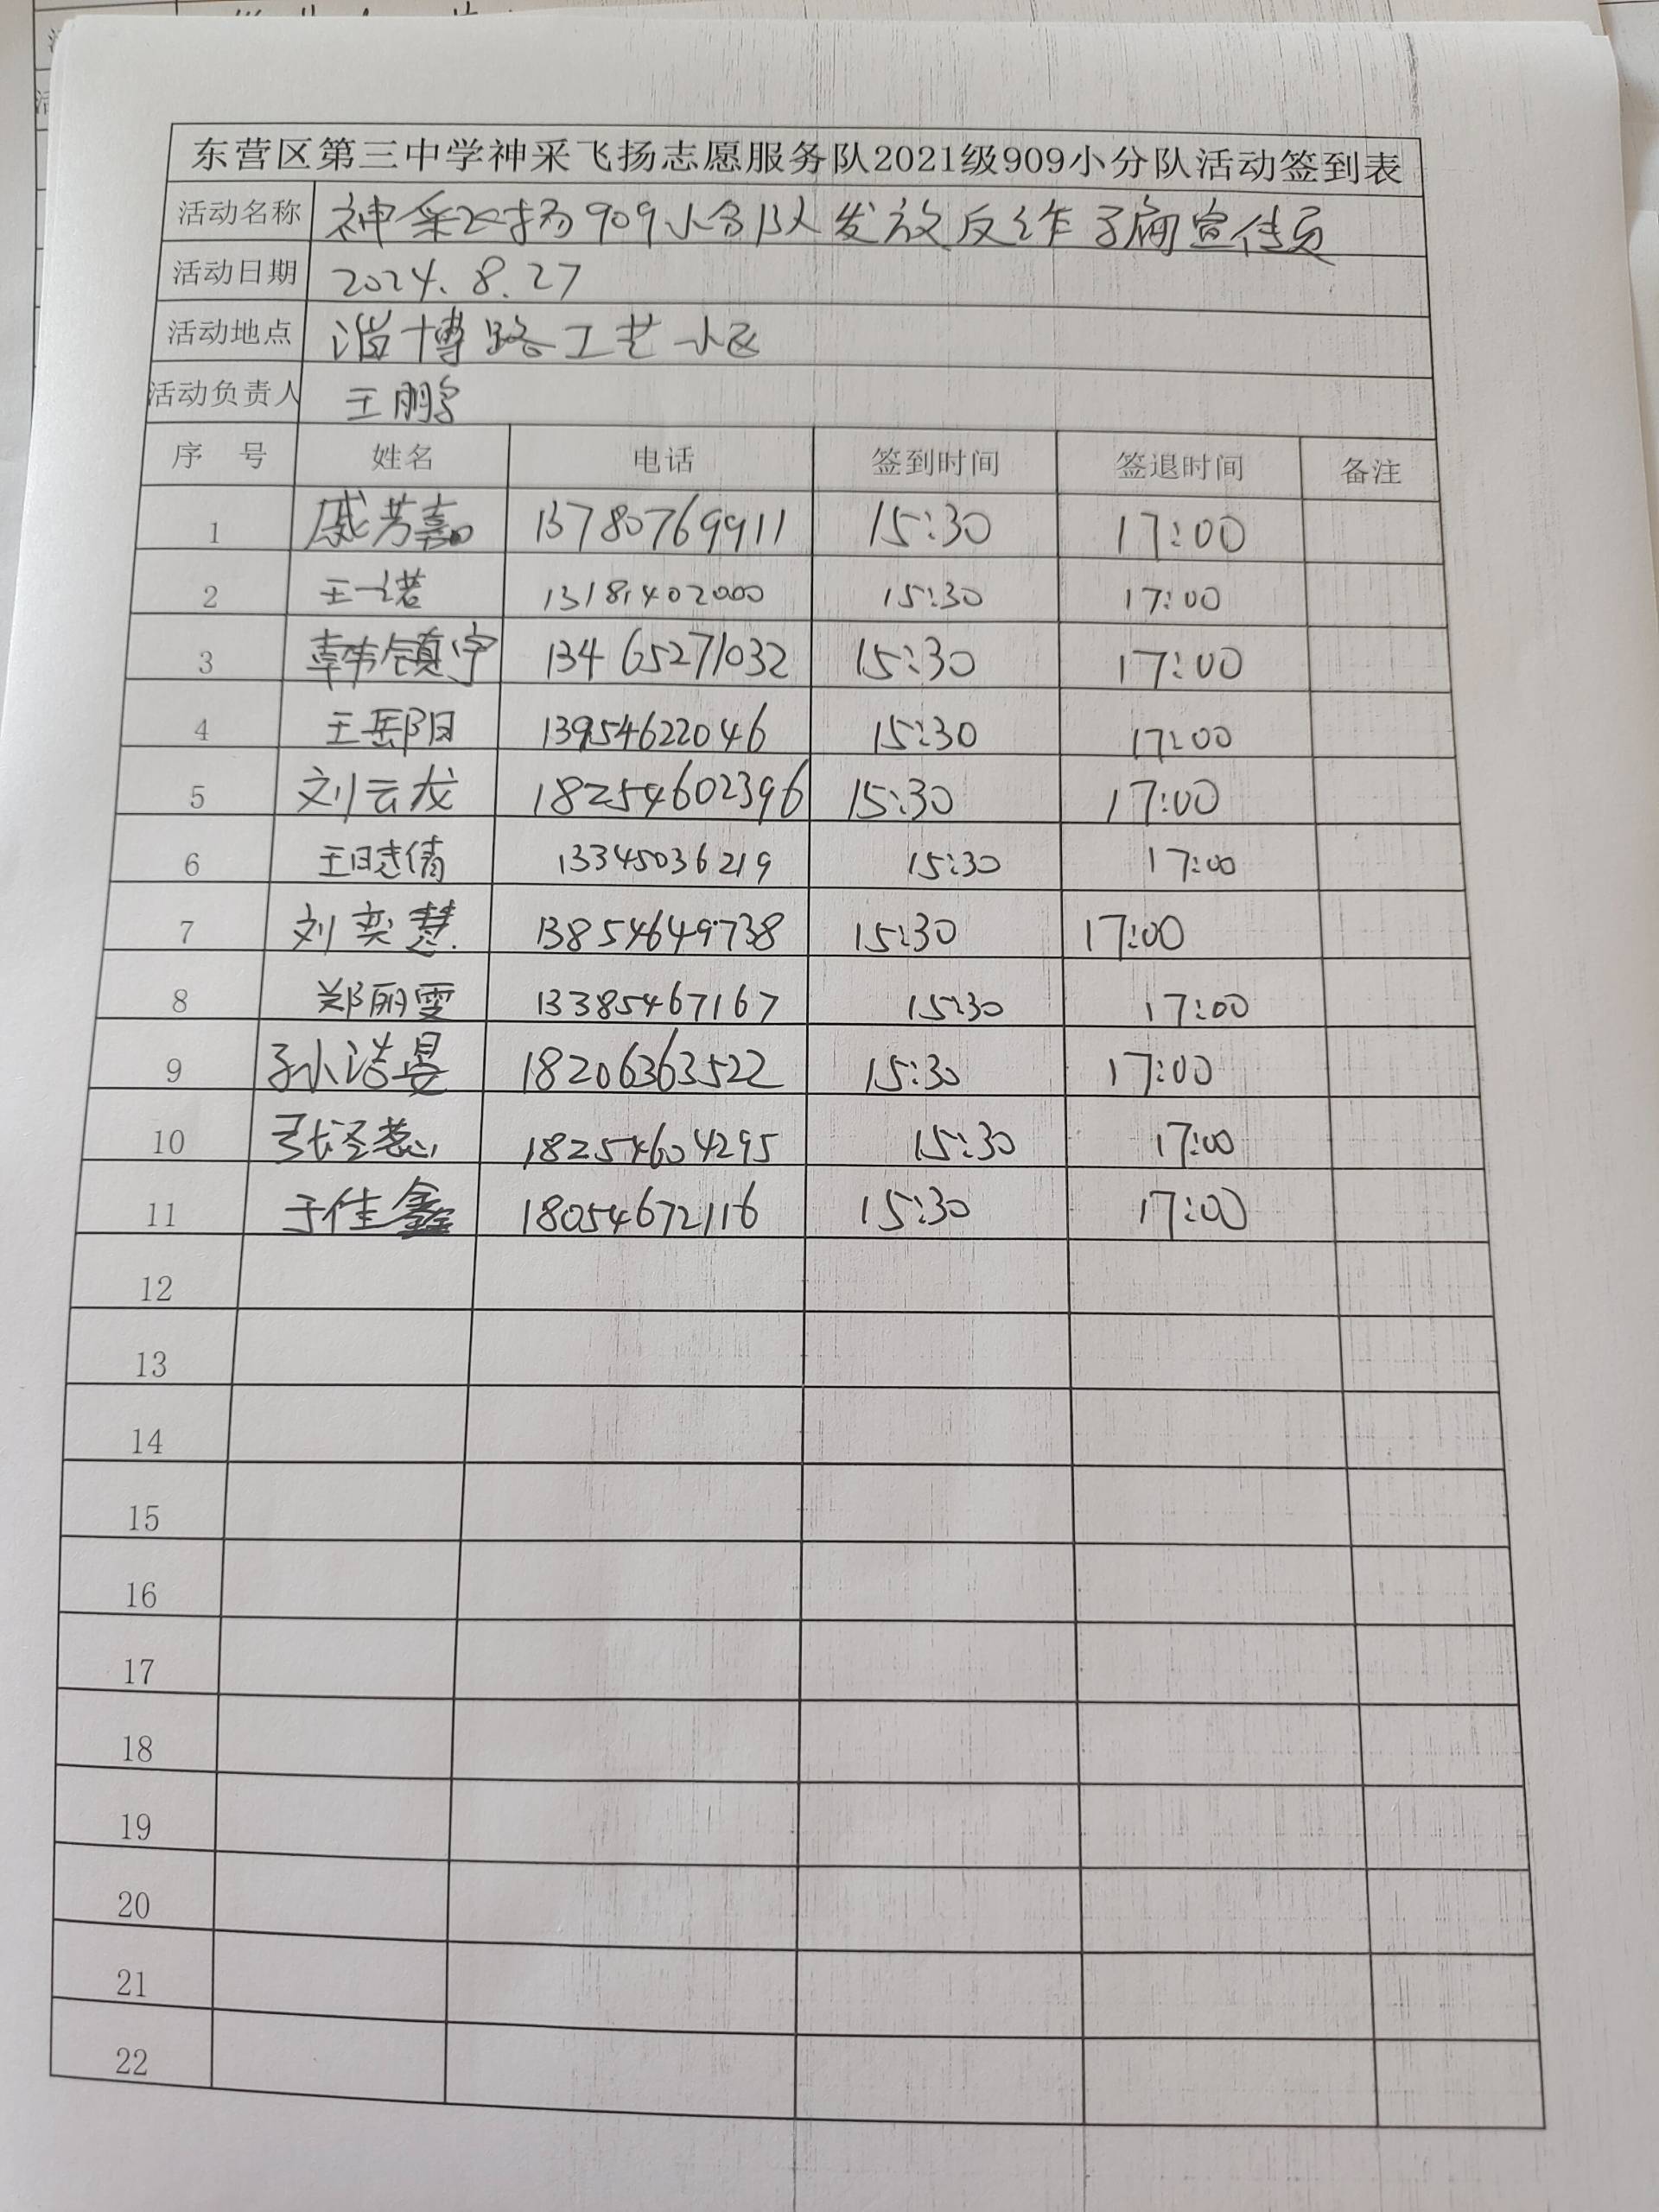 东营区第三中学神采飞扬志愿服务队2021级909小分队活动签到表
活动名称 神采飞扬909小分队发放反诈骗宣传员
活动日期 2024.8.27
活动地点 淄博路工艺小区
活动负责人 王鹏
序 号 姓名 电话 签到时间 签退时间 备注
1 戚芳嘉 13780769911 15:30 17:00
2 王一诺 13181402000 15:30 17:00
3 韩镇宇 13465271032 15:30 17:00
4 王岳阳 13954622046 15:30 17:00
5 刘云龙 18254602396 15:30 17:00
6 王晓倩 13345036219 15:30 17:00
7 刘奕慧 13854649738 15:30 17:00
8 郑丽雯 13385467167 15:30 17:00
9 孙浩晏 18206363522 15:30 17:00
10 张泽惹 18254604295 15:30 17:00
11 于佳鑫 18054672116 15:30 17:00
12
13
14
15
16
17
18
19
20
21
22